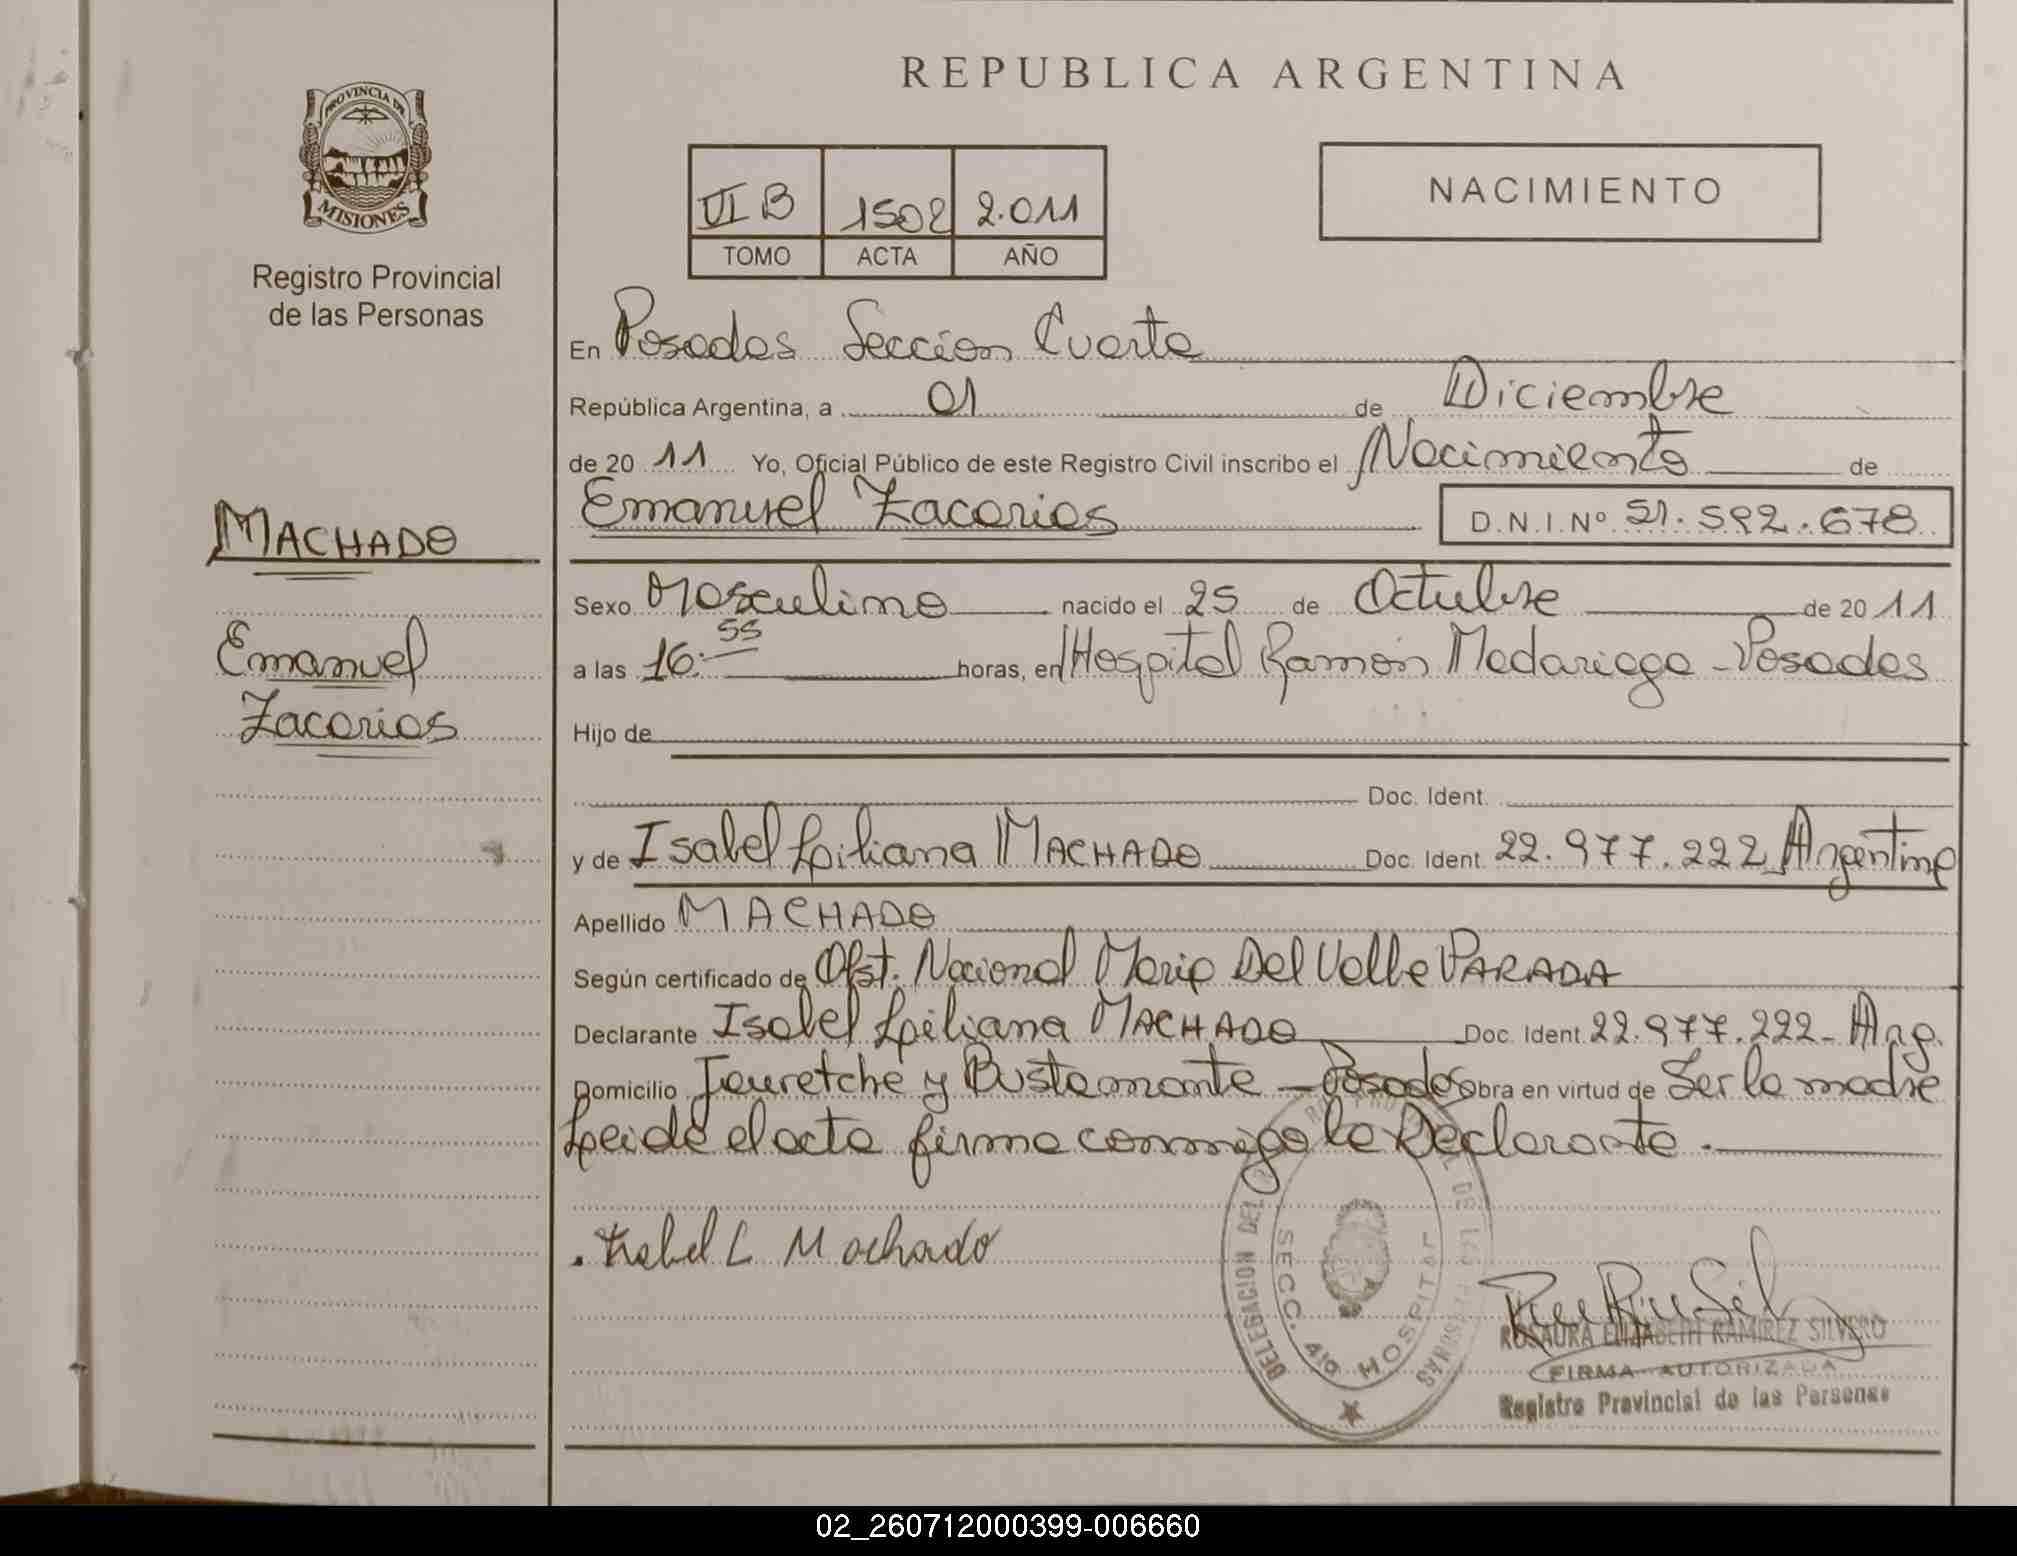 PROVINCIA DE
MISIONES
Registro Provincial
de las Personas
MACHADO
Emanuel
Zacarias
REPUBLICA ARGENTINA
VI B 1502 2.011
TOMO ACTA AÑO
NACIMIENTO
En Posadas Seccion Cuarta
República Argentina, a 01 de Diciembre
de 20 11 Yo, Oficial Público de este Registro Civil inscribo el Nacimiento de
Emanuel Zacarias D.N.I.Nº 51.592.678
Sexo Masculino nacido el 25 de Octubre de 20 11
a las 16:55 horas, en Hospital Ramon Madariaga - Posadas
Hijo de
Doc. Ident.
y de Isabel Liliana MACHADO Doc. Ident. 22.977.222 Argentina
Apellido MACHADO
Según certificado de Obst. Nacional Maria Del Valle PARADA
Declarante Isabel Liliana MACHADO Doc. Ident. 22.977.222 - Arg.
Domicilio Jauretche y Bustamante - Posadas obra en virtud de Ser la madre
Leida el acta firma conmigo la Declarante.
Isabel L Machado
DELEGACION DEL DE LAS PERSONAS
SECC. 4ta HOSPITAL
ROSAURA ELIZABETH RAMIREZ SILVERO
FIRMA AUTORIZADA
Registro Provincial de las Personas
02_260712000399-006660